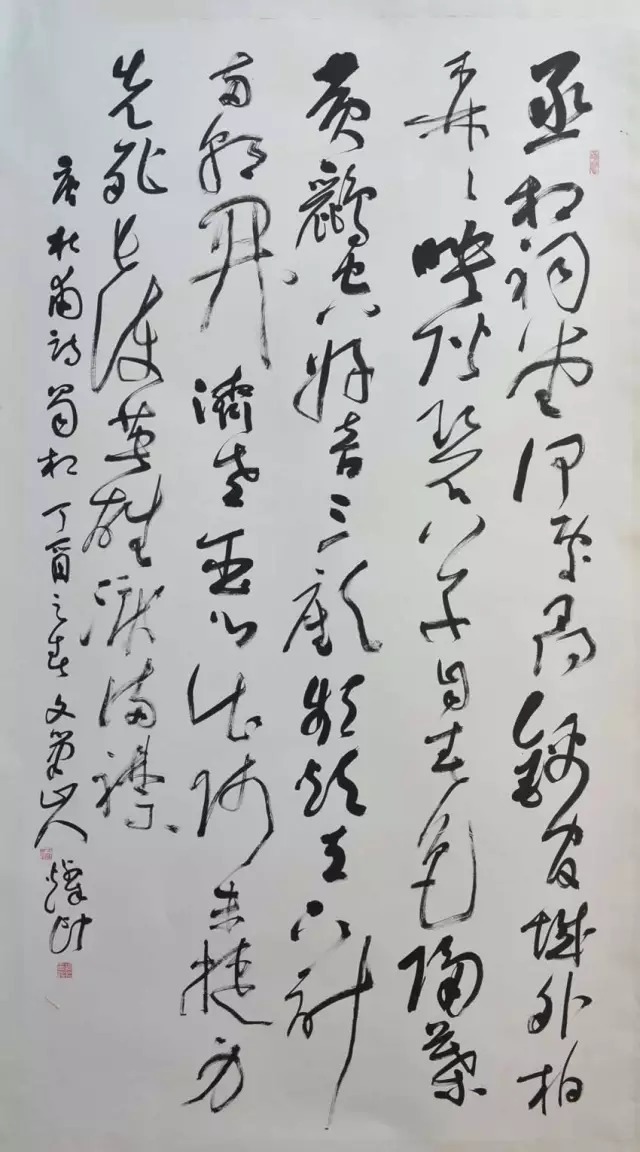 丞相祠堂何處尋錦官城外柏
森々映階碧草自春色隔葉
黃鸝空好音三顧頻煩天下計
兩朝開濟老臣心出師未捷身
先死長使英雄淚滿襟
唐杜甫詩蜀相丁酉之春文筆山人